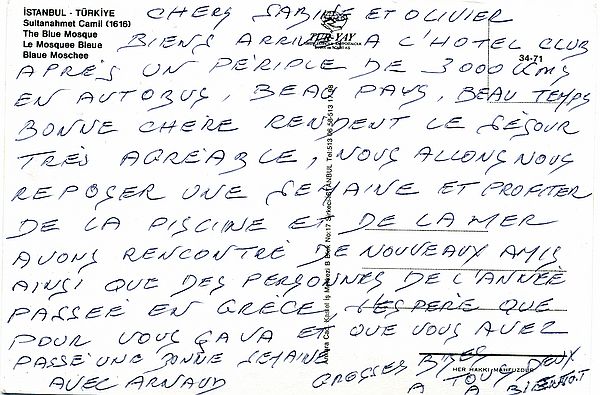 İSTANBUL - TÜRKİYE
Sultanahmet Camii (1616)
The Blue Mosque
Le Mosquee Bleue
Blaue Moschee
TUR-YAY
34-71
CHERS SABINE ET OLIVIER
BIENS ARRIVÉ A L'HOTEL CLUB
APRÈS UN PÉRIPLE DE 3000 KMS
EN AUTOBUS, BEAU PAYS, BEAU TEMPS
BONNE CHÈRE RENDENT LE SÉJOUR
TRÈS AGRÉABLE, NOUS ALLONS NOUS
REPOSER UNE SEMAINE ET PROFITER
DE LA PISCINE ET DE LA MER
AVONS RENCONTRÉ DE NOUVEAUX AMIS
AINSI QUE DES PERSONNES DE L'ANNÉE
PASSÉE EN GRÈCE, J'ESPÈRE QUE
POUR VOUS ÇA VA ET QUE VOUS AVEZ
PASSÉ UNE BONNE SEMAINE
AVEC ARNAUD
GROSSES BISES
A TOUS DEUX
A BIENTOT
HER HAKKI MAHFUZDUR
Ankara Cad. İş Merkezi B Blok No:17 Sirkeci-İSTANBUL Tel:513 06 58-513 17 98